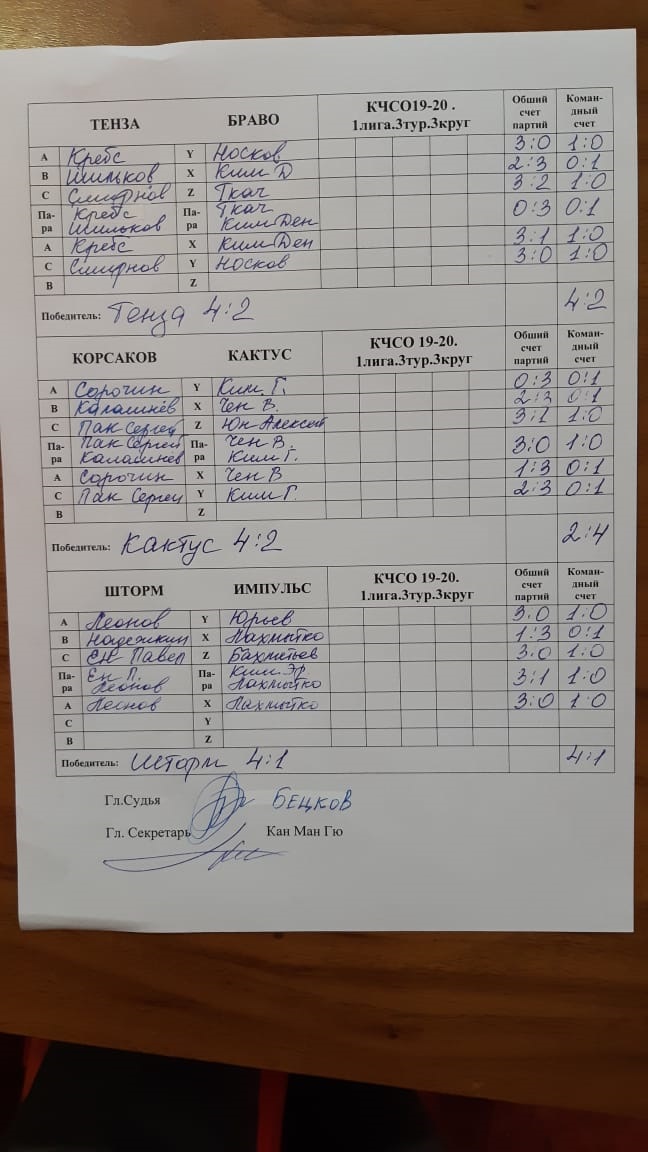 ТЕНЗА БРАВО КЧСО19-20 . 1лига.3тур.3круг Обший счет партий Коман-дный счет
А Кребс Y Носков 3:0 1:0
В Шильков X Ким Д 2:3 0:1
С Смирнов Z Ткач 3:2 1:0
Па-ра Кребс Шильков Па-ра Ткач Ким Ден 0:3 0:1
А Кребс X Ким Ден 3:1 1:0
С Смирнов Y Носков 3:0 1:0
В Z
Победитель: Тенза 4:2 4:2
КОРСАКОВ КАКТУС КЧСО 19-20. 1лига.3тур.3круг Обший счет партий Коман-дный счет
А Сорочин Y Ким Г. 0:3 0:1
В Калашнёв X Чен В. 2:3 0:1
С Пак Сергей Z Юн Алексей 3:1 1:0
Па-ра Пак Сергей Калашнёв Па-ра Чен В. Ким Г. 3:0 1:0
А Сорочин X Чен В 1:3 0:1
С Пак Сергей Y Ким Г. 2:3 0:1
В Z
Победитель: Кактус 4:2 2:4
ШТОРМ ИМПУЛЬС КЧСО 19-20. 1лига.3тур.3круг Обший счет партий Коман-дный счет
А Леонов Y Юрьев 3:0 1:0
В Надежкин X Лахмытко 1:3 0:1
С Ен Павел Z Бахметьев 3:0 1:0
Па-ра Ен П. Леонов Па-ра Ким Эр Лахмытко 3:1 1:0
А Леонов X Лахмытко 3:0 1:0
С Y
В Z
Победитель: Шторм 4:1 4:1
Гл.Судья БЕЦКОВ
Гл. Секретарь Кан Ман Гю